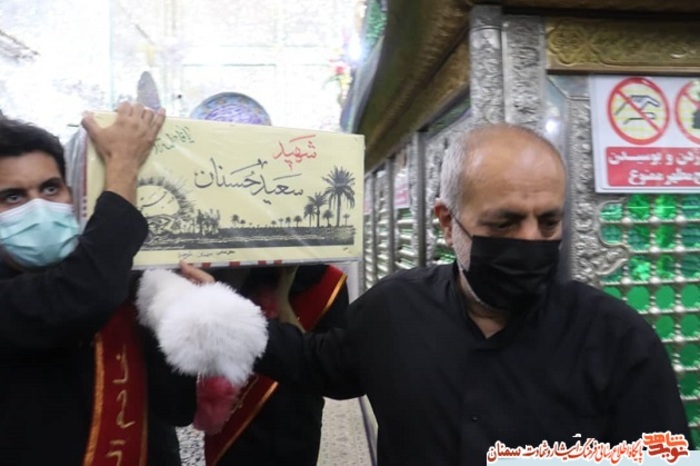 یا فاطمه الزهرا
شهید
سعید حسنان
خادم ال
دن و بوسیدن
مطهر ممنوع
نوید شاهد
پایگاه اطلاع رسانی فرهنگ ایثار و شهادت سمنان